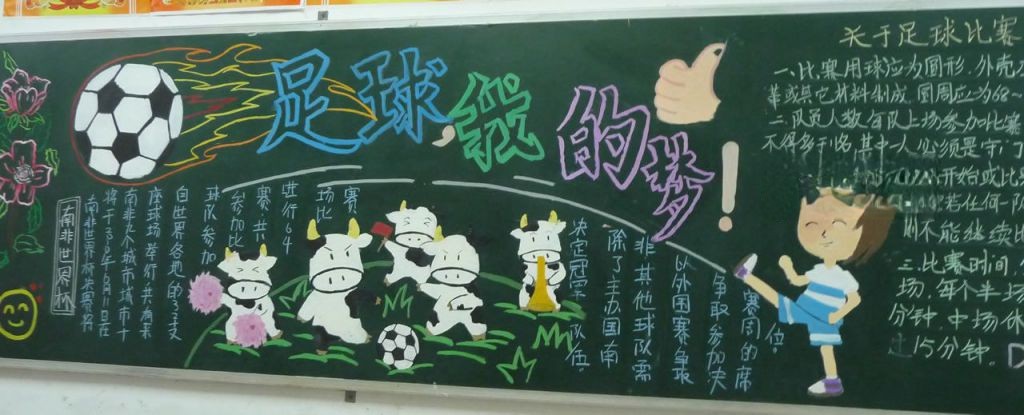 足球,我的梦!
南非世界杯
南非世界杯决赛将
将于2010年6月11日在
南非九个城市城市十
座球场举行共有来
自世界各地的32支
球队参加
参加比
赛共
进行64
场比
赛
决定冠军队伍
除了主办国南
非其他球队需
从外围赛争取
争取参加决
赛周的席
位。
关于足球比赛
一、比赛用球应为圆形.外壳
革或其它材料制成.圆周应为68~
二、队员人数:每队上场参加比赛
不得多于11名,其中一人必须是守门
开始或比
若任何一队
则不能继续比
三、比赛时间:
场.每个半场
分钟.中场休
过15分钟.